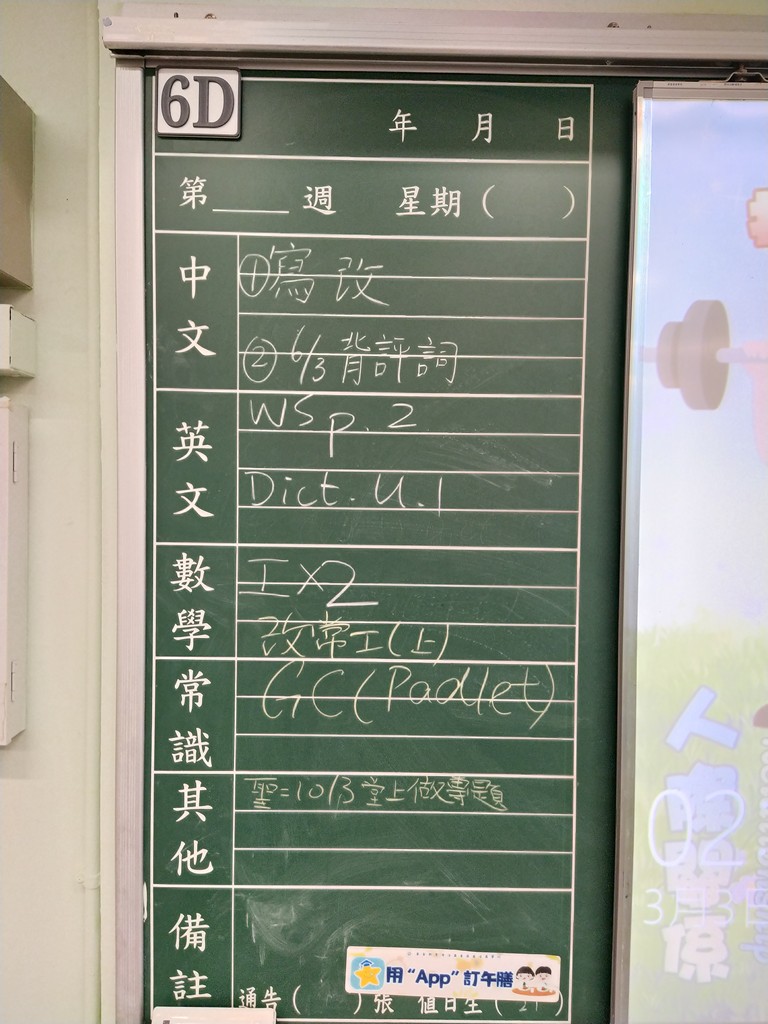 6D
年 月 日
第____週 星期( )
中文
①寫改
②6/3背評詞
英文
WS p.2
Dict. U.1
數學
工×2
改常工(上)
常識
GC(Padlet)
其他
聖=10/3堂上做專題
備註
用“App”訂午膳
通告( )張 值日生(21)
人際關係
02
3月3日